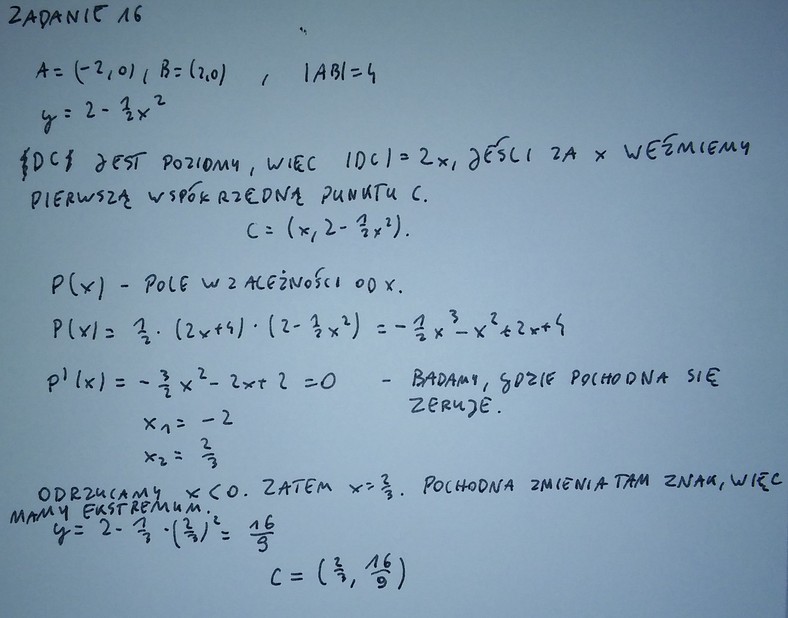 ZADANIE 16
A = (-2,0), B = (2,0) , |AB| = 4
y = 2 - 1/2 x²
{DC} JEST POZIOMY, WIĘC |DC| = 2x, JEŚLI ZA x WEŹMIEMY
PIERWSZĄ WSPÓŁRZĘDNĄ PUNKTU C.
C = (x, 2 - 1/2 x²).
P(x) - POLE W ZALEŻNOŚCI OD X.
P(x) = 1/2 · (2x+4) · (2 - 1/2 x²) = -1/2 x³ - x² + 2x + 4
P'(x) = -3/2 x² - 2x + 2 = 0 - BADAMY, GDZIE POCHODNA SIĘ
ZERUJE.
x₁ = -2
x₂ = 2/3
ODRZUCAMY x < 0. ZATEM x = 2/3. POCHODNA ZMIENIA TAM ZNAK, WIĘC
MAMY EKSTREMUM.
y = 2 - 1/3 · (2/3)² = 16/9
C = (2/3, 16/9)